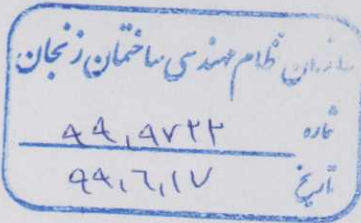 سازمان نظام مهندسی ساختمان زنجان
شماره ۹۹,۹۷۲۲
تاریخ ۹۹,۶,۱۷